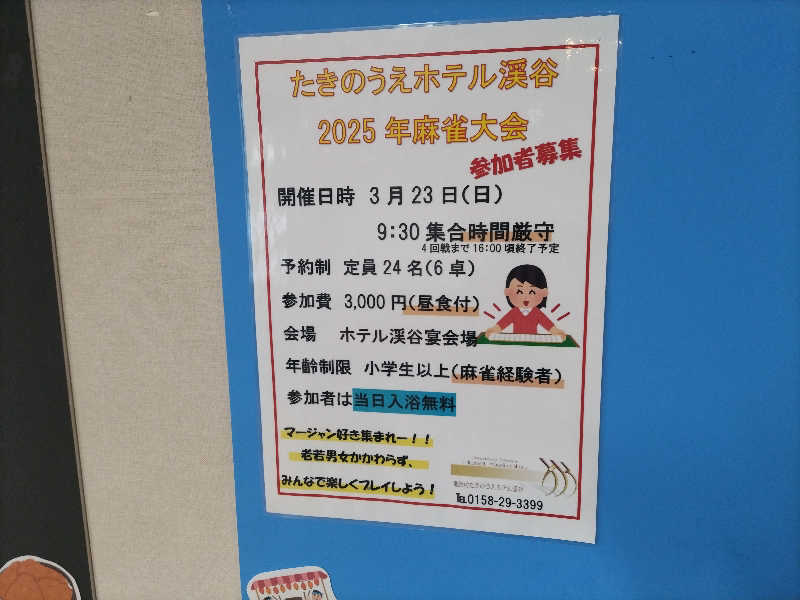 たきのうえホテル渓谷
2025年麻雀大会
参加者募集
開催日時 3月23日(日)
9:30 集合時間厳守
4回戦まで16:00頃終了予定
予約制 定員24名(6卓)
参加費 3,000円(昼食付)
会場 ホテル渓谷宴会場
年齢制限 小学生以上(麻雀経験者)
参加者は当日入浴無料
マージャン好き集まれー！！
老若男女かかわらず、
みんなで楽しくプレイしよう！
℡0158-29-3399